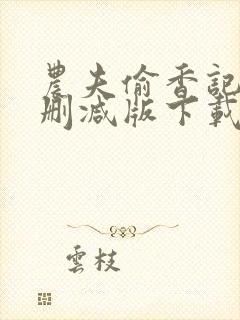 農夫偷香記
刪減版下載
雲枝